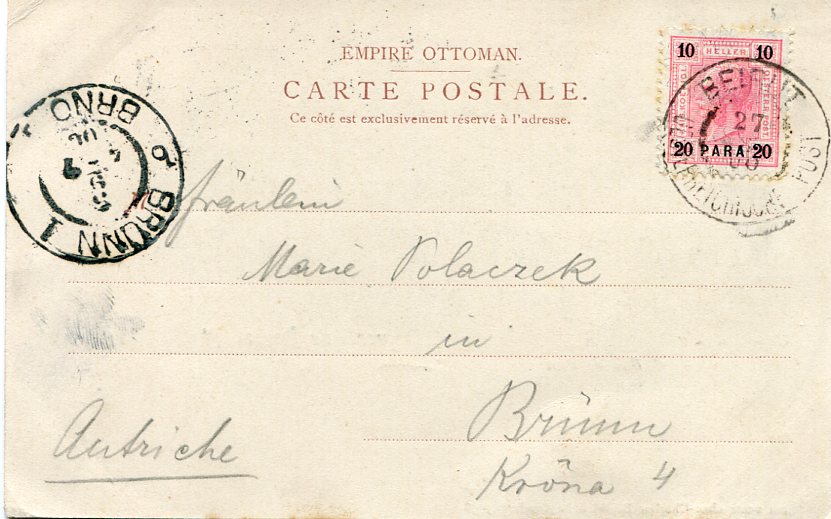 EMPIRE OTTOMAN.
CARTE POSTALE.
Ce côté est exclusivement réservé à l'adresse.
10 HELLER 10
20 PARA 20
BEIRUT
27
POST
BRÜNN 1
BRNO
Fräulein
Marie Polaczek
in
Brünn
Kröna 4
Autriche